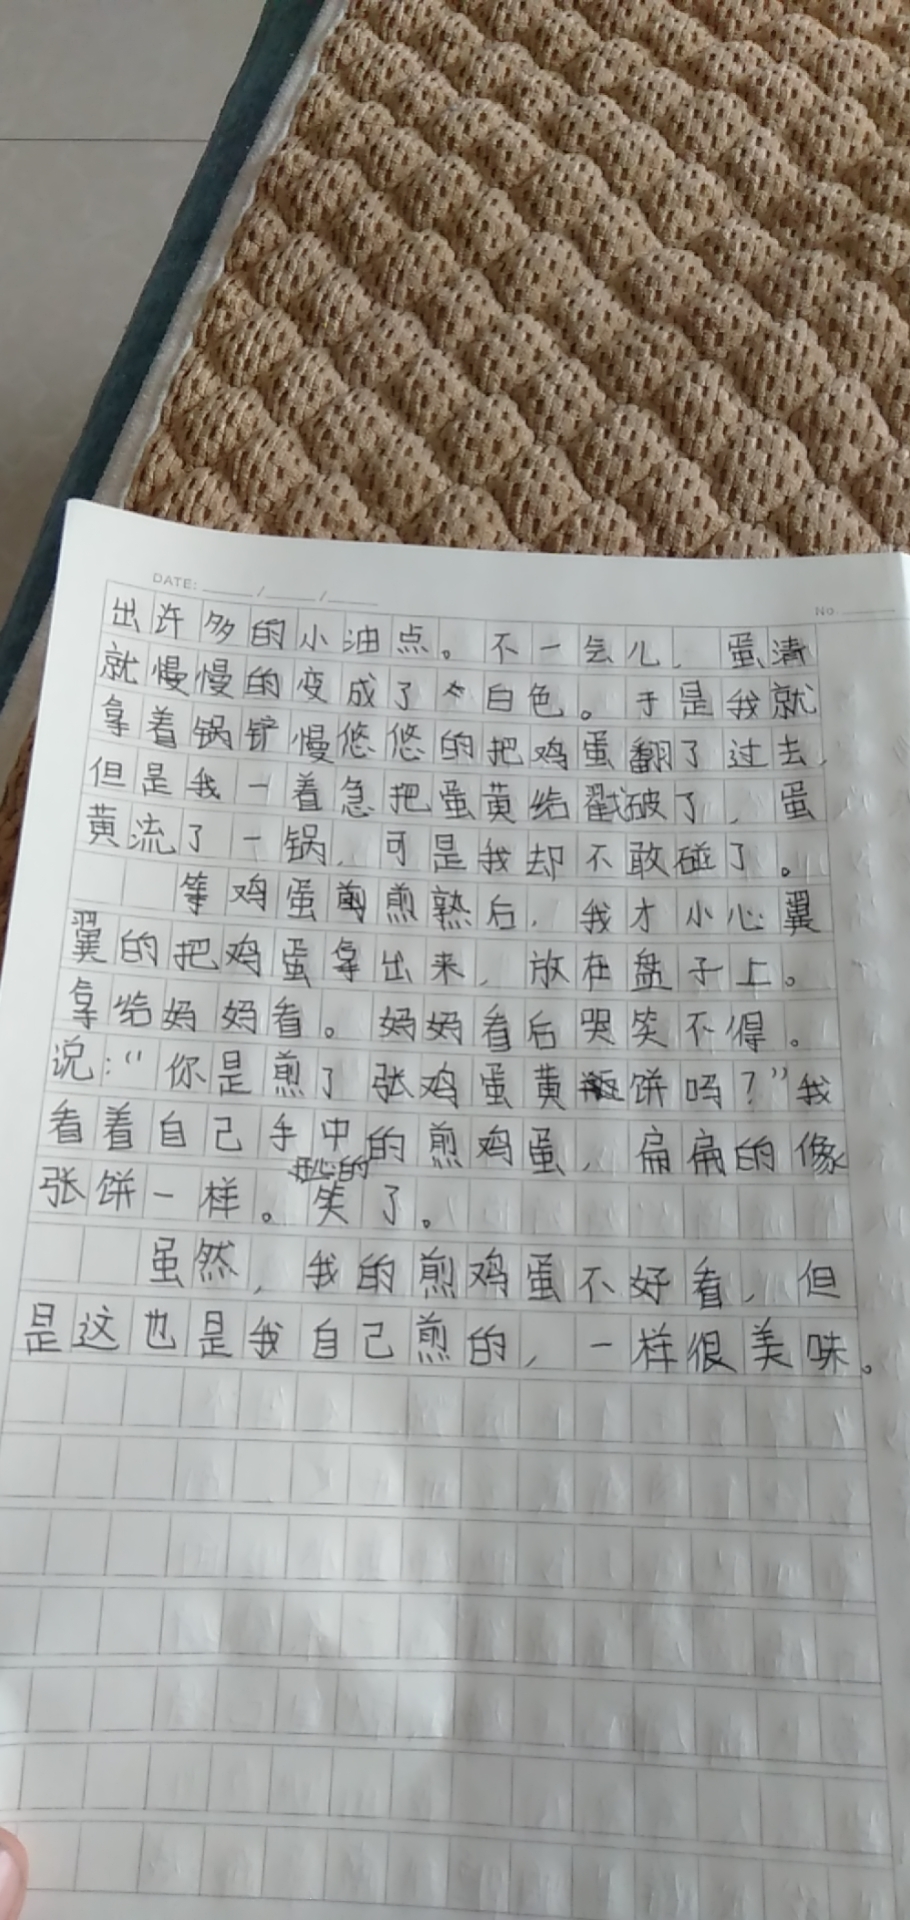 DATE: ____/____/____
No.
出许多的小油点。不一会儿，蛋清
就慢慢的变成了白色。于是我就
拿着锅铲慢悠悠的把鸡蛋翻了过去，
但是我一着急把蛋黄给戳破了，蛋
黄流了一锅，可是我却不敢碰了。
等鸡蛋煎熟后，我才小心翼
翼的把鸡蛋拿出来，放在盘子上。
拿给妈妈看。妈妈看后哭笑不得。
说：“你是煎了张鸡蛋黄饼吗？”我
看着自己手中的煎鸡蛋，扁扁的像
张饼一样。笑了。
虽然，我的煎鸡蛋不好看，但
是这也是我自己煎的，一样很美味。